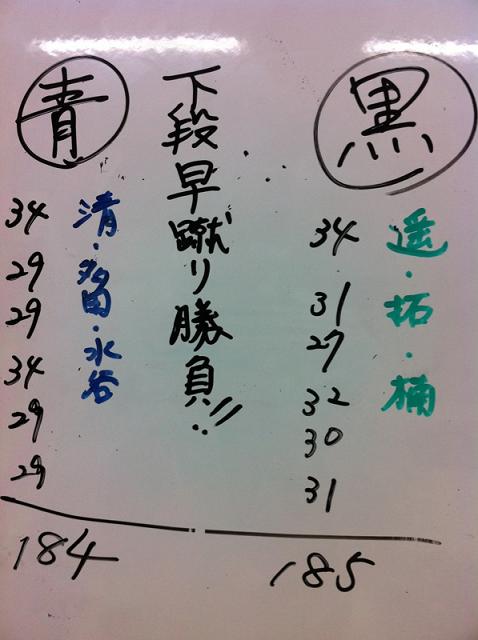 黒
遥・拓・楠
34
31
27
32
30
31
185
下段早蹴り勝負!!
青
清・多田・水谷
34
29
29
34
29
29
184